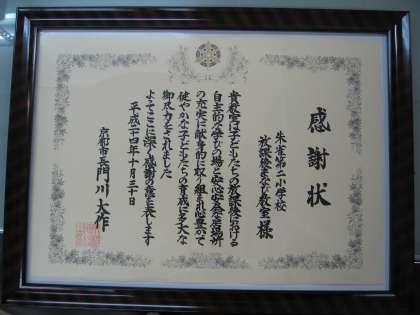 感謝状
朱雀第二小学校
放課後まなび教室様
貴教室は子どもたちの放課後における
自主的な学びの場と安心安全な居場所
の充実に献身的に取り組まれ心豊かで
健やかな子どもたちの育成に多大な
御尽力をされました
よってここに深く感謝の意を表します
平成二十四年十月三十日
京都市長門川大作